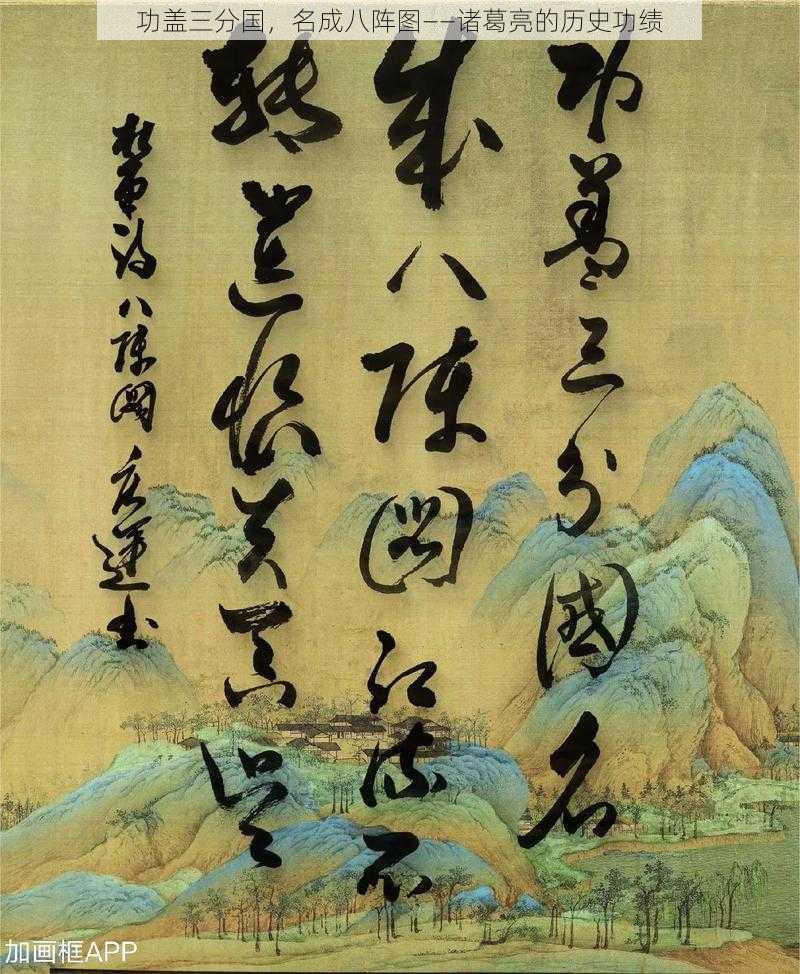 功盖三分国，名成八阵图——诸葛亮的历史功绩
功盖三分國名
成八陣圖江流不
轉遺恨失吞吴
杜甫诗八陣圖 運书
加画框APP